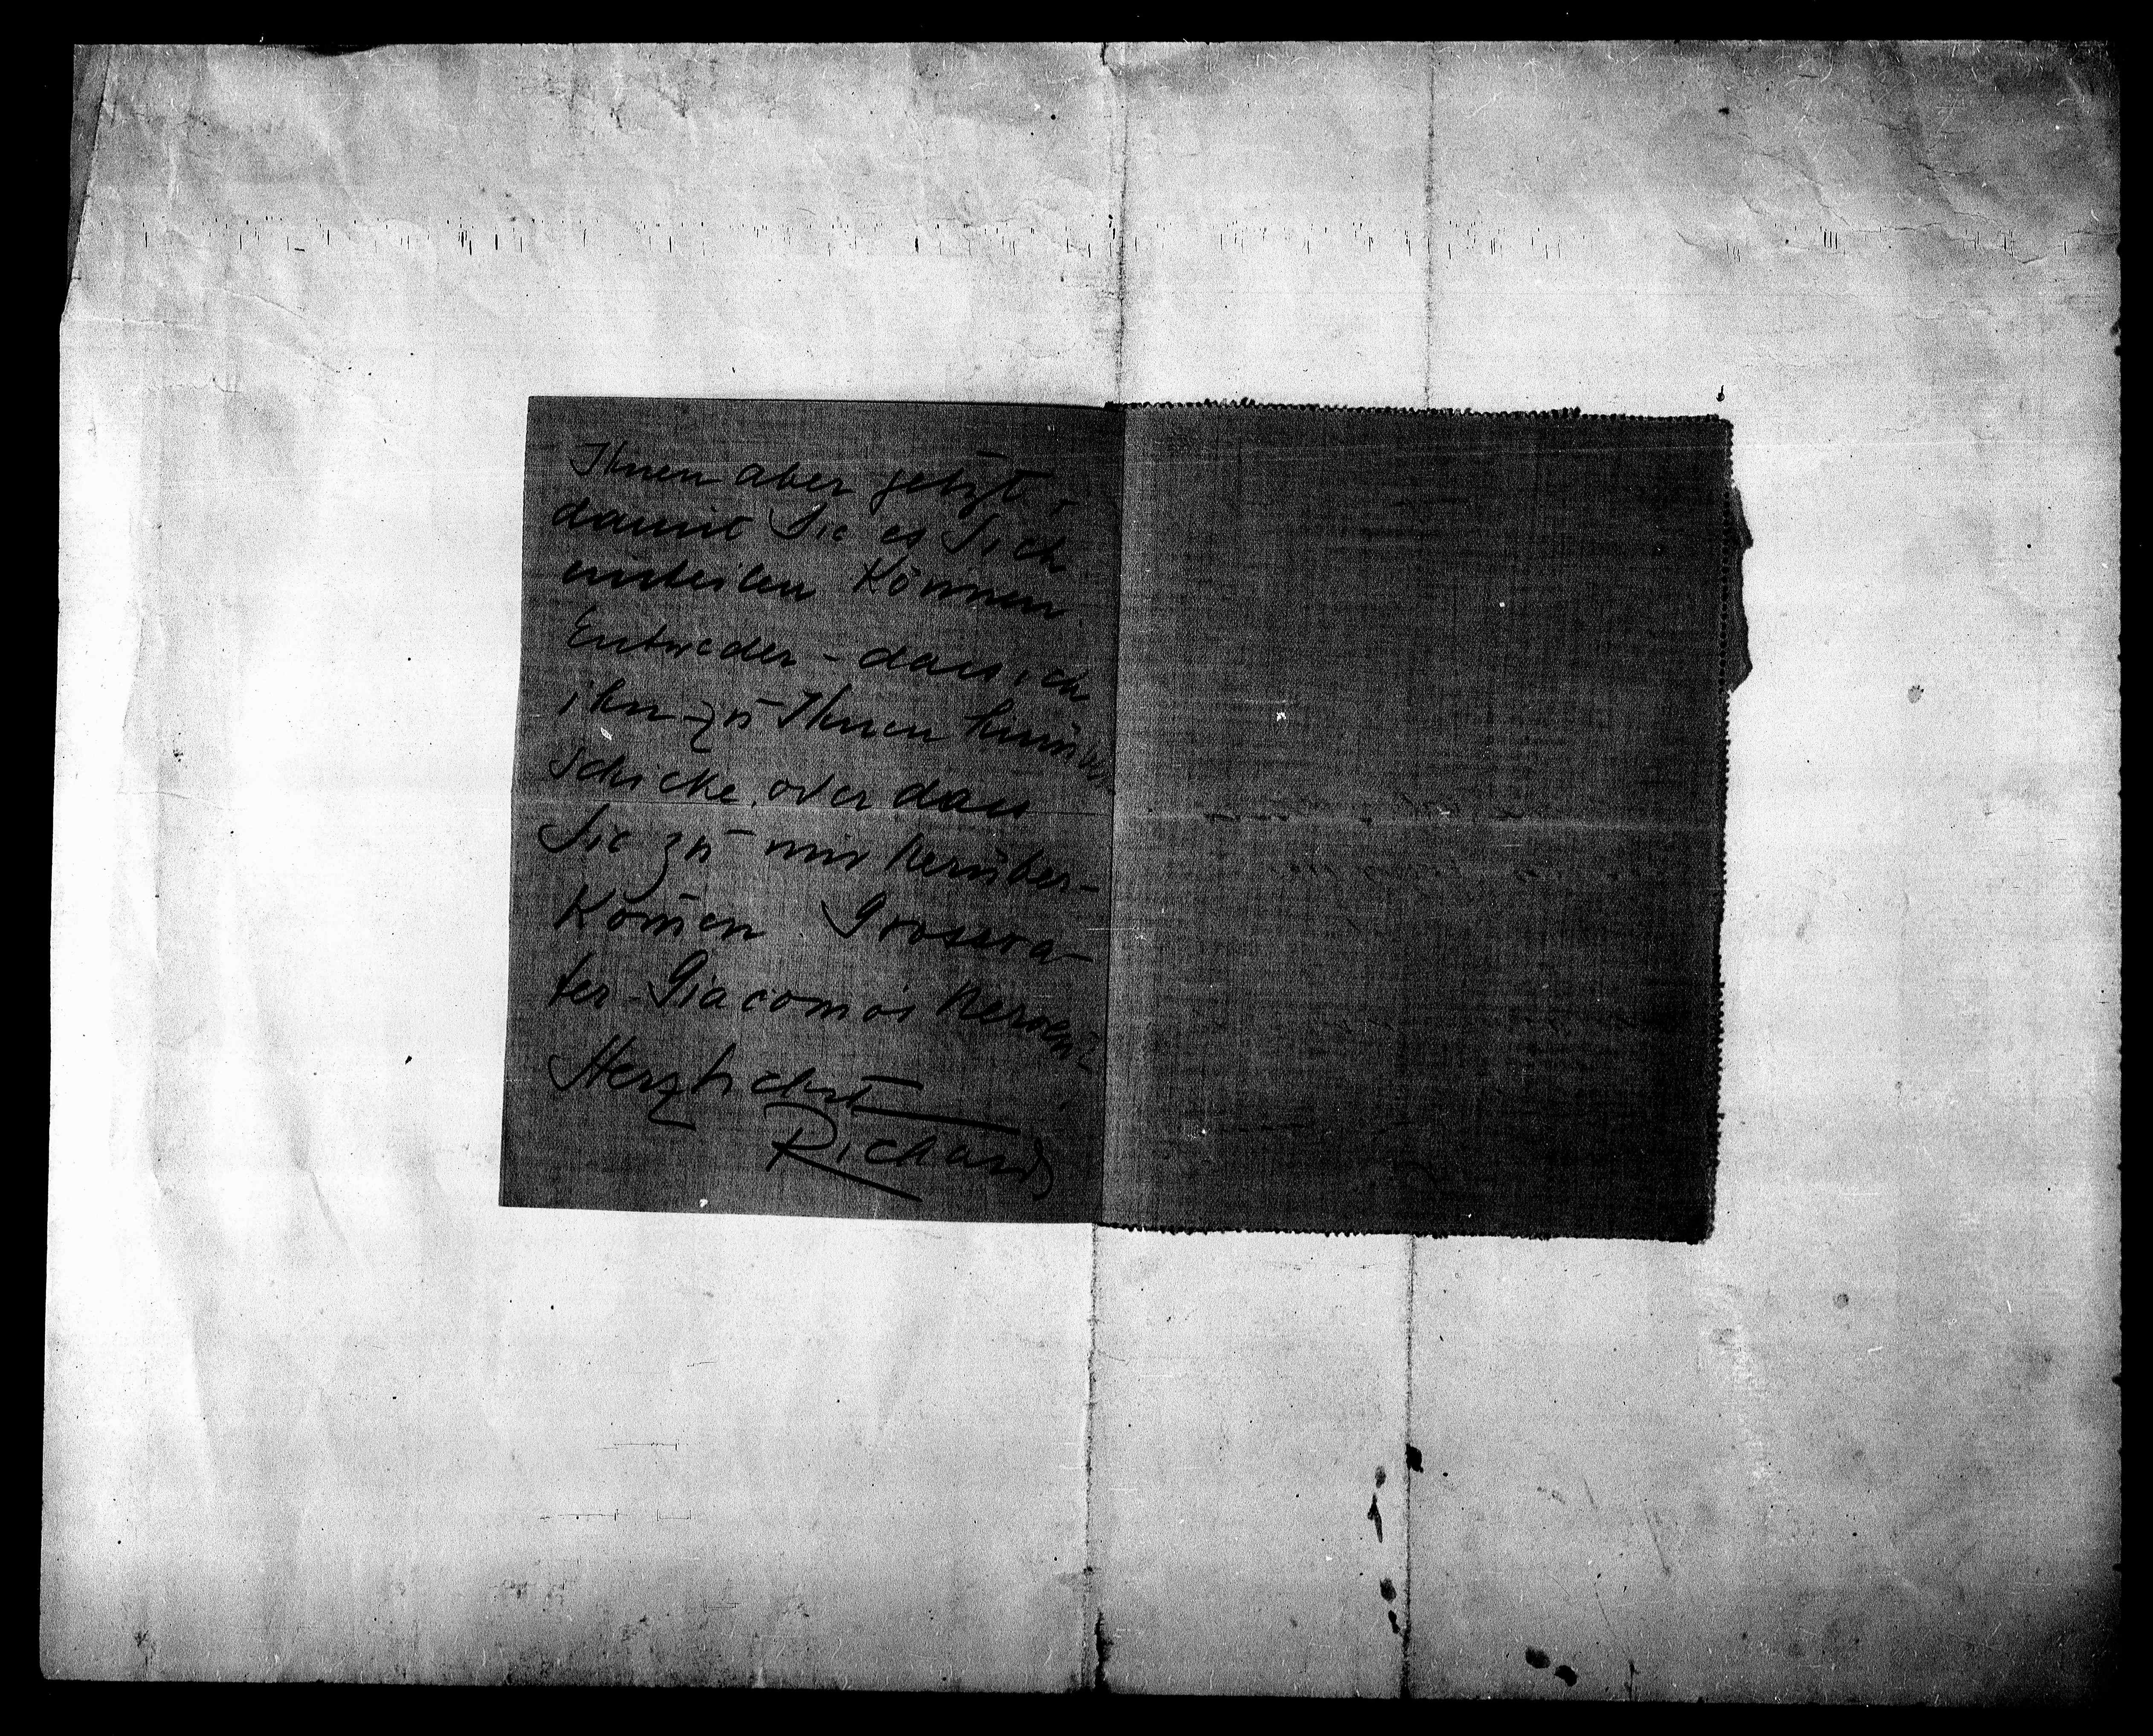 Ihnen aber jetzt,
damit Sie es Sich
einteilen können.
Entweder - dass ich
ihn zu Ihnen hinüber
schicke, oder dass
Sie zu mir herüber-
kom̅en. Grosva-
ter - Giacomos
Herzlichst
Richard